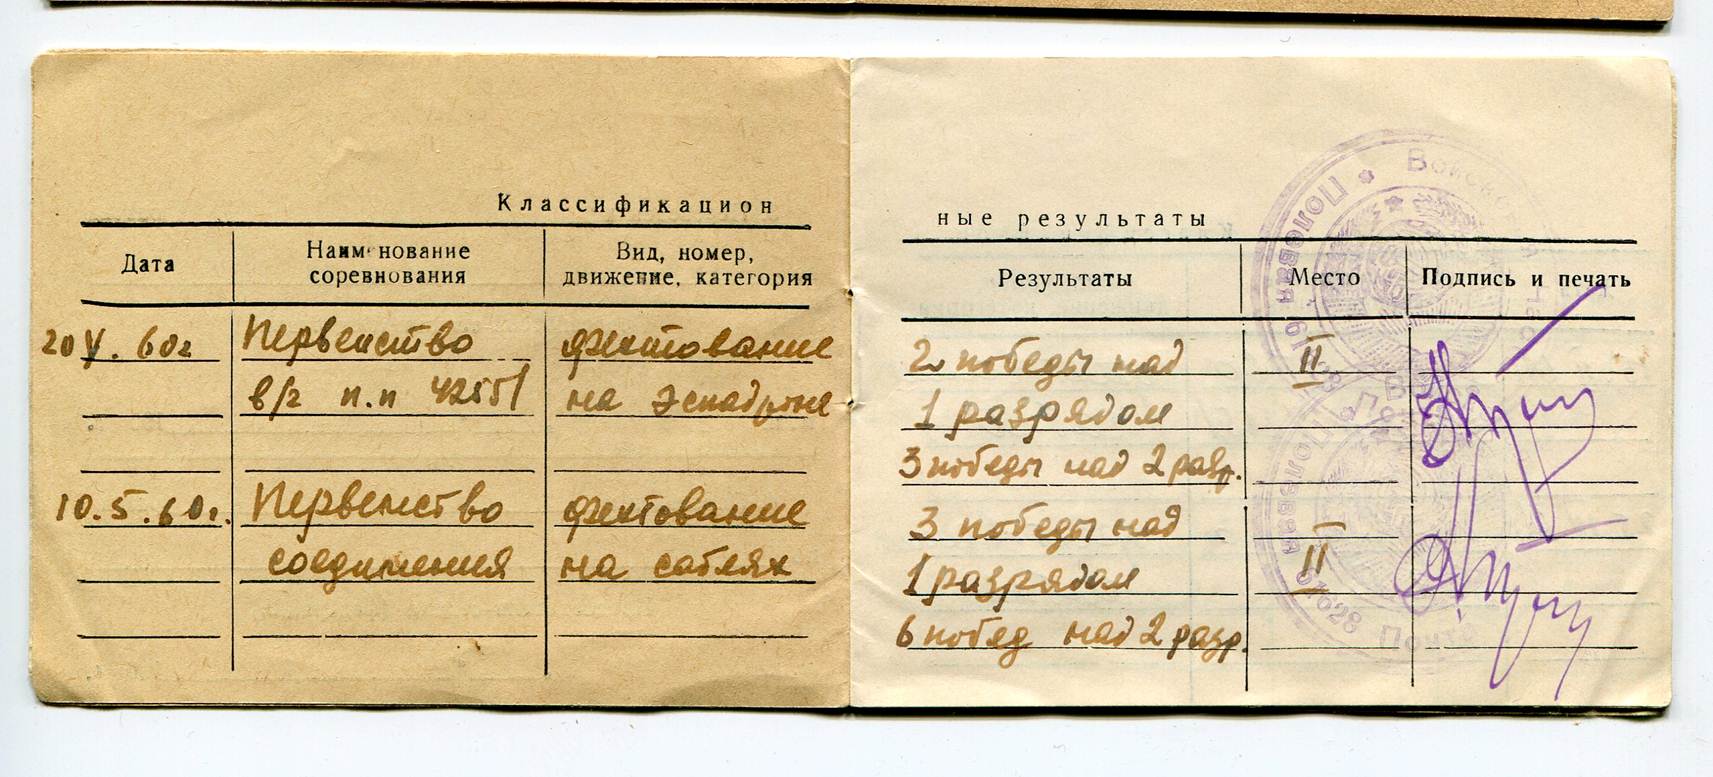 Классификацион
ные результаты
Дата
Наименование
соревнования
Вид, номер,
движение, категория
Результаты
Место
Подпись и печать
20 V. 60г
Первенство
фехтование
2 победы над
II
в/г п.п 42551
на эспадроне
1 разрядом
3 победы над 2 разр.
10.5.60г.
Первенство
фехтование
3 победы над
II
соединения
на саблях
1 разрядом
6 побед над 2 разр.
Полевая
Почта